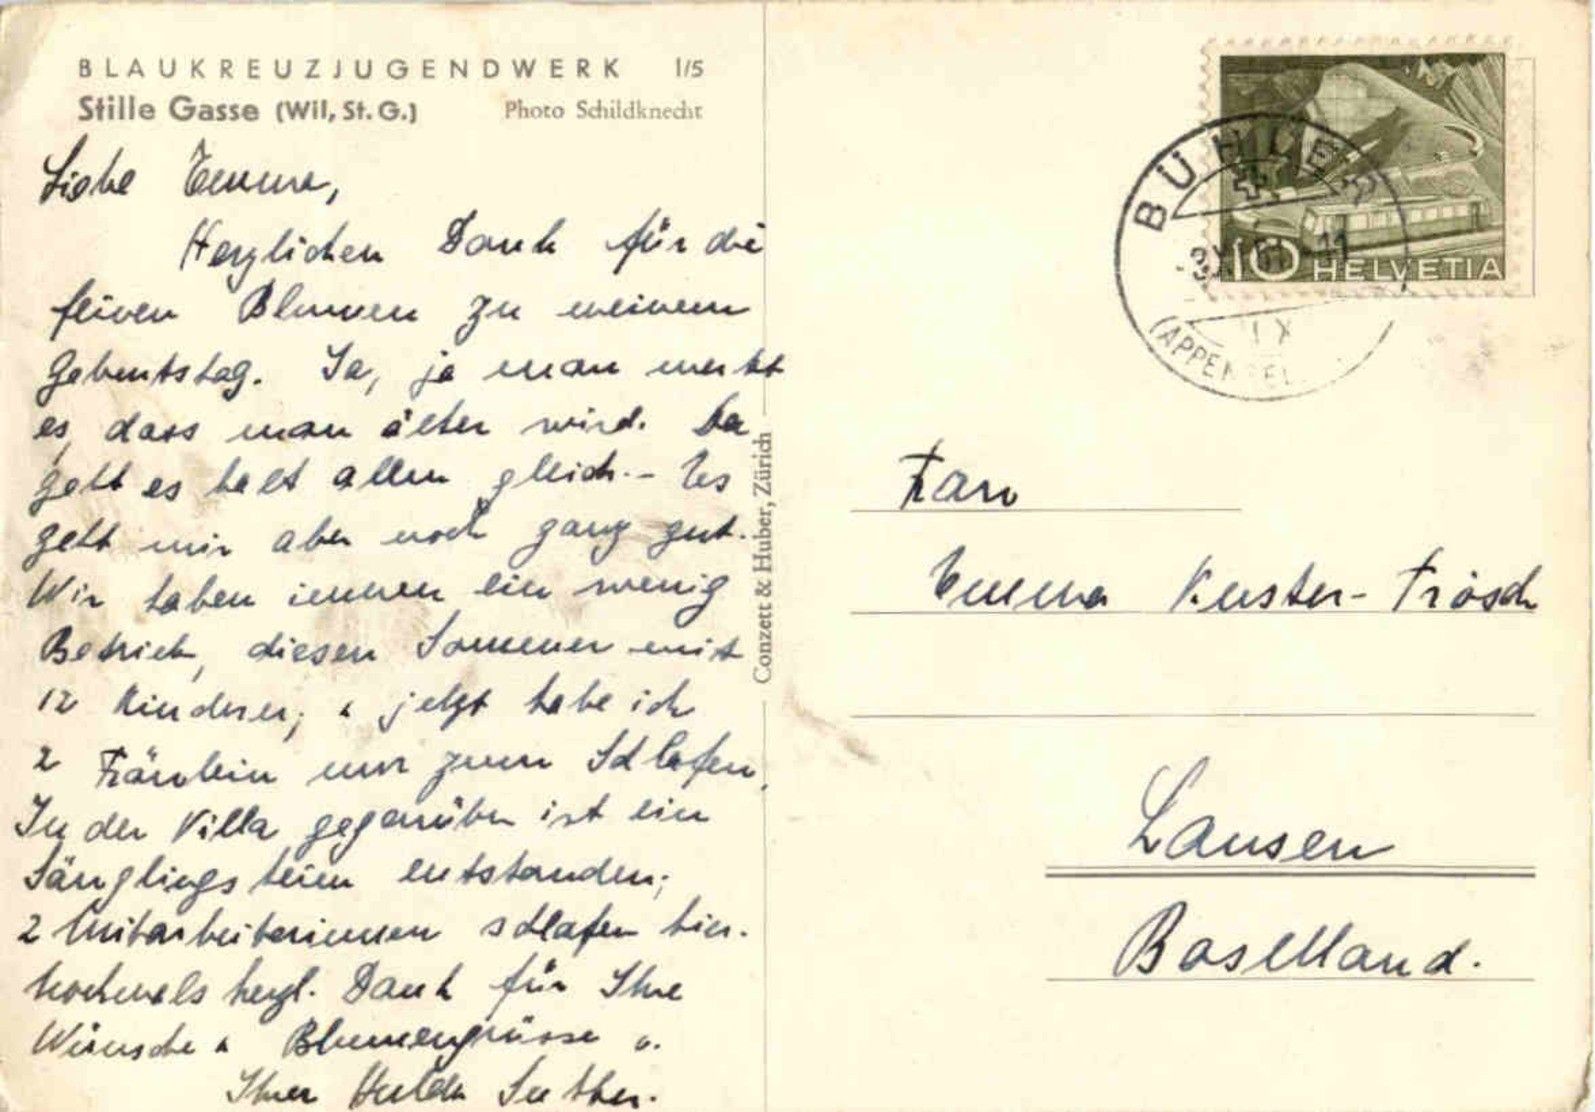 BLAUKREUZJUGENDWERK 1/5
Stille Gasse (Wil, St. G.) Photo Schildknecht
Liebe Emma,
Herzlichen Dank für die
feinen Blumen zu meinem
Geburtstag. Ja, ja man merkt
es, dass man älter wird. Da
geht es halt allen gleich.- Es
geht mir aber noch ganz gut.
Wir haben immer ein wenig
Betrieb, diesen Sommer mit
12 Kinderen; & jetzt habe ich
2 Fräulein nur zum Schlafen,
In der Villa gegenüber ist ein
Säuglingsheim entstanden;
2 Mitarbeiterinnen schlafen hier.
Nochmals herzl. Dank für Ihre
Wünsche & Blumengrüsse u.
Ihrer Hulda Suther.
Conzett & Huber, Zürich
BÜHLER
11
(APPENZELL
10 HELVETIA
Frau
Emma Kuster-Frösch
Lausen
Baselland.